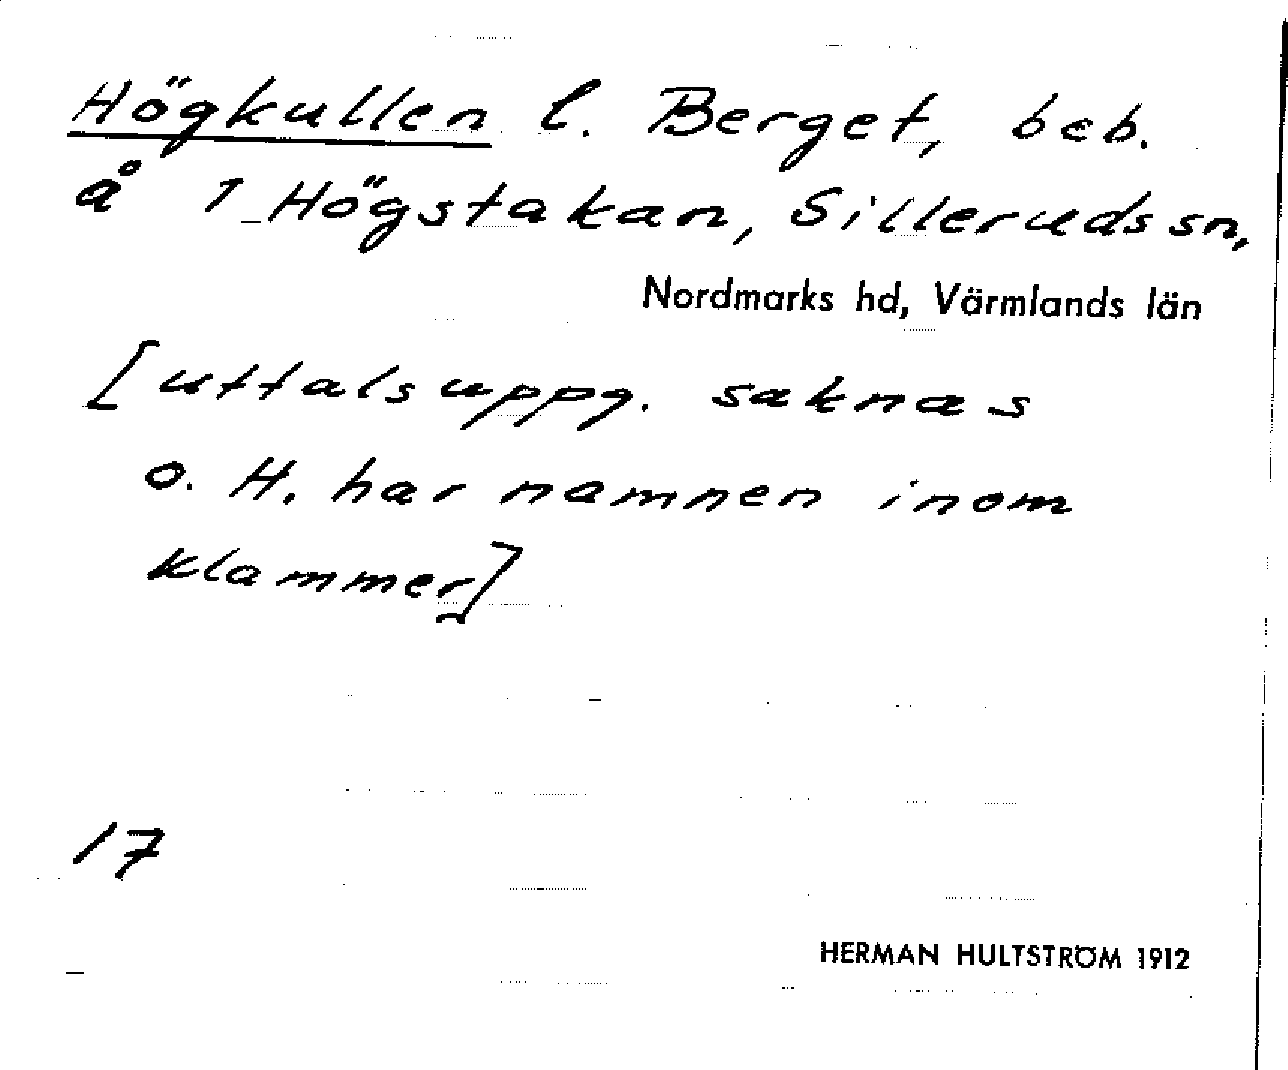 Högkullen l. Berget, beb.
å 1 Högstakan, Sillerudssn,
Nordmarks hd, Värmlands län
[uttalsuppg. saknas
o. H. har namnen inom
klammer]
17
HERMAN HULTSTRÖM 1912